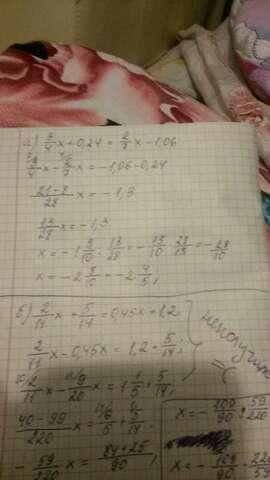 а) 3/4 x + 0,24 = 2/7 x - 1,06
3/4 x - 2/7 x = -1,06 - 0,24
21-8/28 x = -1,3
13/28 x = -1,3
x = -1 3/10 : 13/28 = -13/10 · 28/13 = -28/10
x = -2 8/10 = -2 4/5;
б) 2/11 x + 5/14 = 0,45x + 1,2;
2/11 x - 0,45x = 1,2 + 5/14;
2/11 x - 9/20 x = 1 1/5 + 5/14;
40-99/220 x = 6/5 + 5/14
- 59/220 x = 84+25/90;
неполучи
=(
x = - 109/90 : 59
x = - 109/90 · 220/59